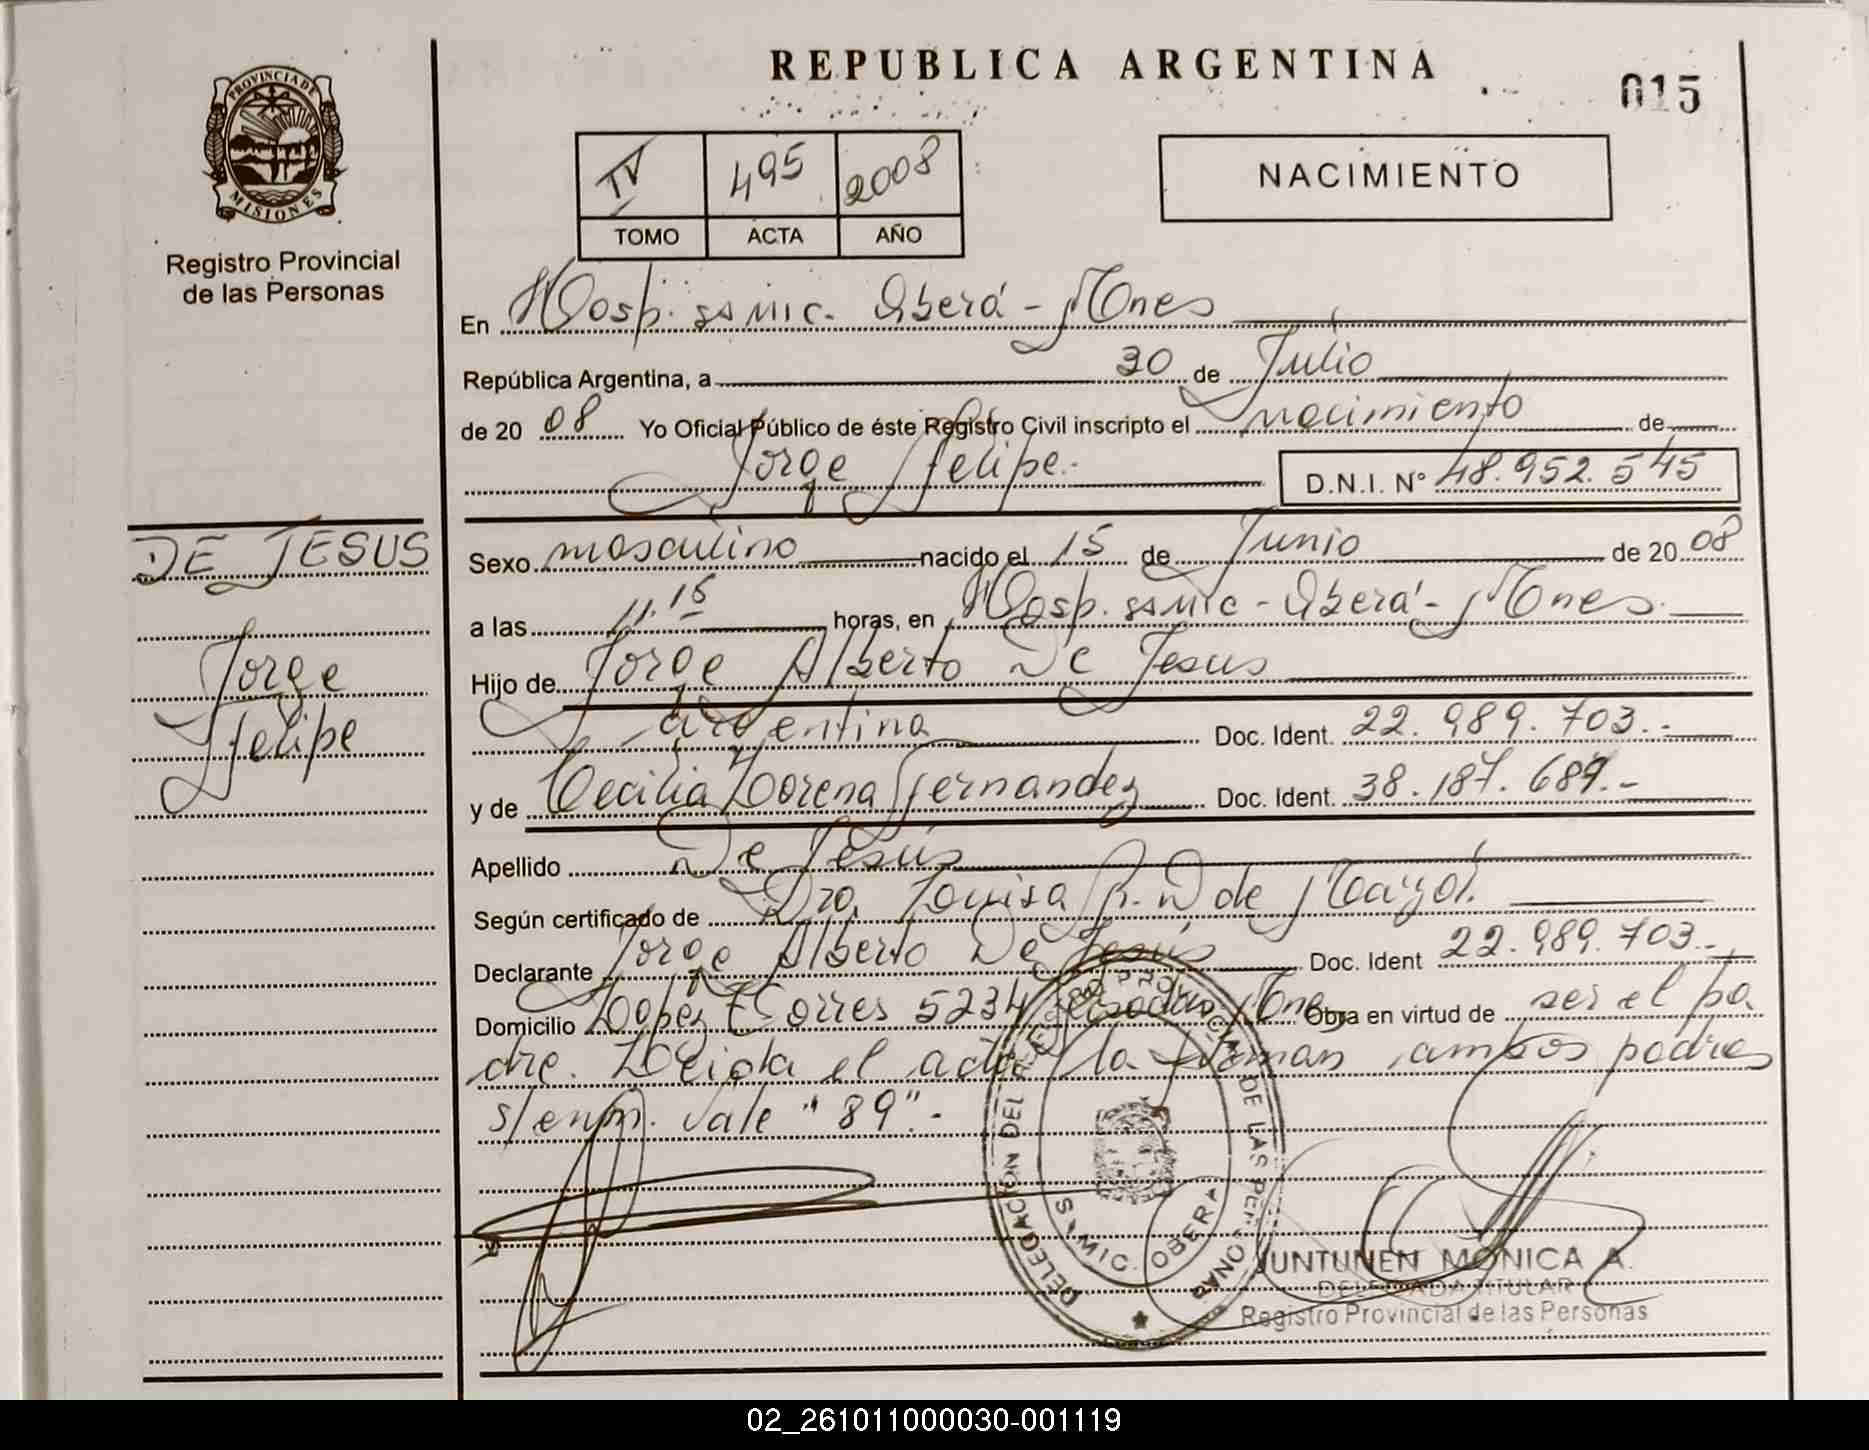 REPUBLICA ARGENTINA
015
PROVINCIA DE
MISIONES
Registro Provincial
de las Personas
IV 495 2008
TOMO ACTA AÑO
NACIMIENTO
En Hosp. SAMIC. Oberá - Mnes
República Argentina, a 30 de Julio
de 2008 Yo Oficial Público de éste Registro Civil inscripto el nacimiento de
Jorge Felipe.- D.N.I. Nº 48.952.545
DE JESUS
Jorge
Felipe
Sexo masculino nacido el 15 de Junio de 2008
a las 11.15 horas, en Hosp. SAMIC - Oberá - Mnes.
Hijo de Jorge Alberto De Jesus
argentina Doc. Ident. 22.989.703.-
y de Cecilia Lorena Fernandez Doc. Ident. 38.187.689.-
Apellido De Jesús
Según certificado de Dra. Louisa R. D de Mayol.
Declarante Jorge Alberto De Jesús Doc. Ident 22.989.703.-
Domicilio Lopez Torres 5234 Posadas Mnes Obra en virtud de ser el pa
dre. Leida el acta la firman ambos padres
s/enm. Vale "89".-
DELEGACION DEL REGISTRO PROVINCIAL DE LAS PERSONAS
SAMIC. OBERA
JUNTUNEN MONICA A.
DELEGADA TITULAR
Registro Provincial de las Personas
02_261011000030-001119